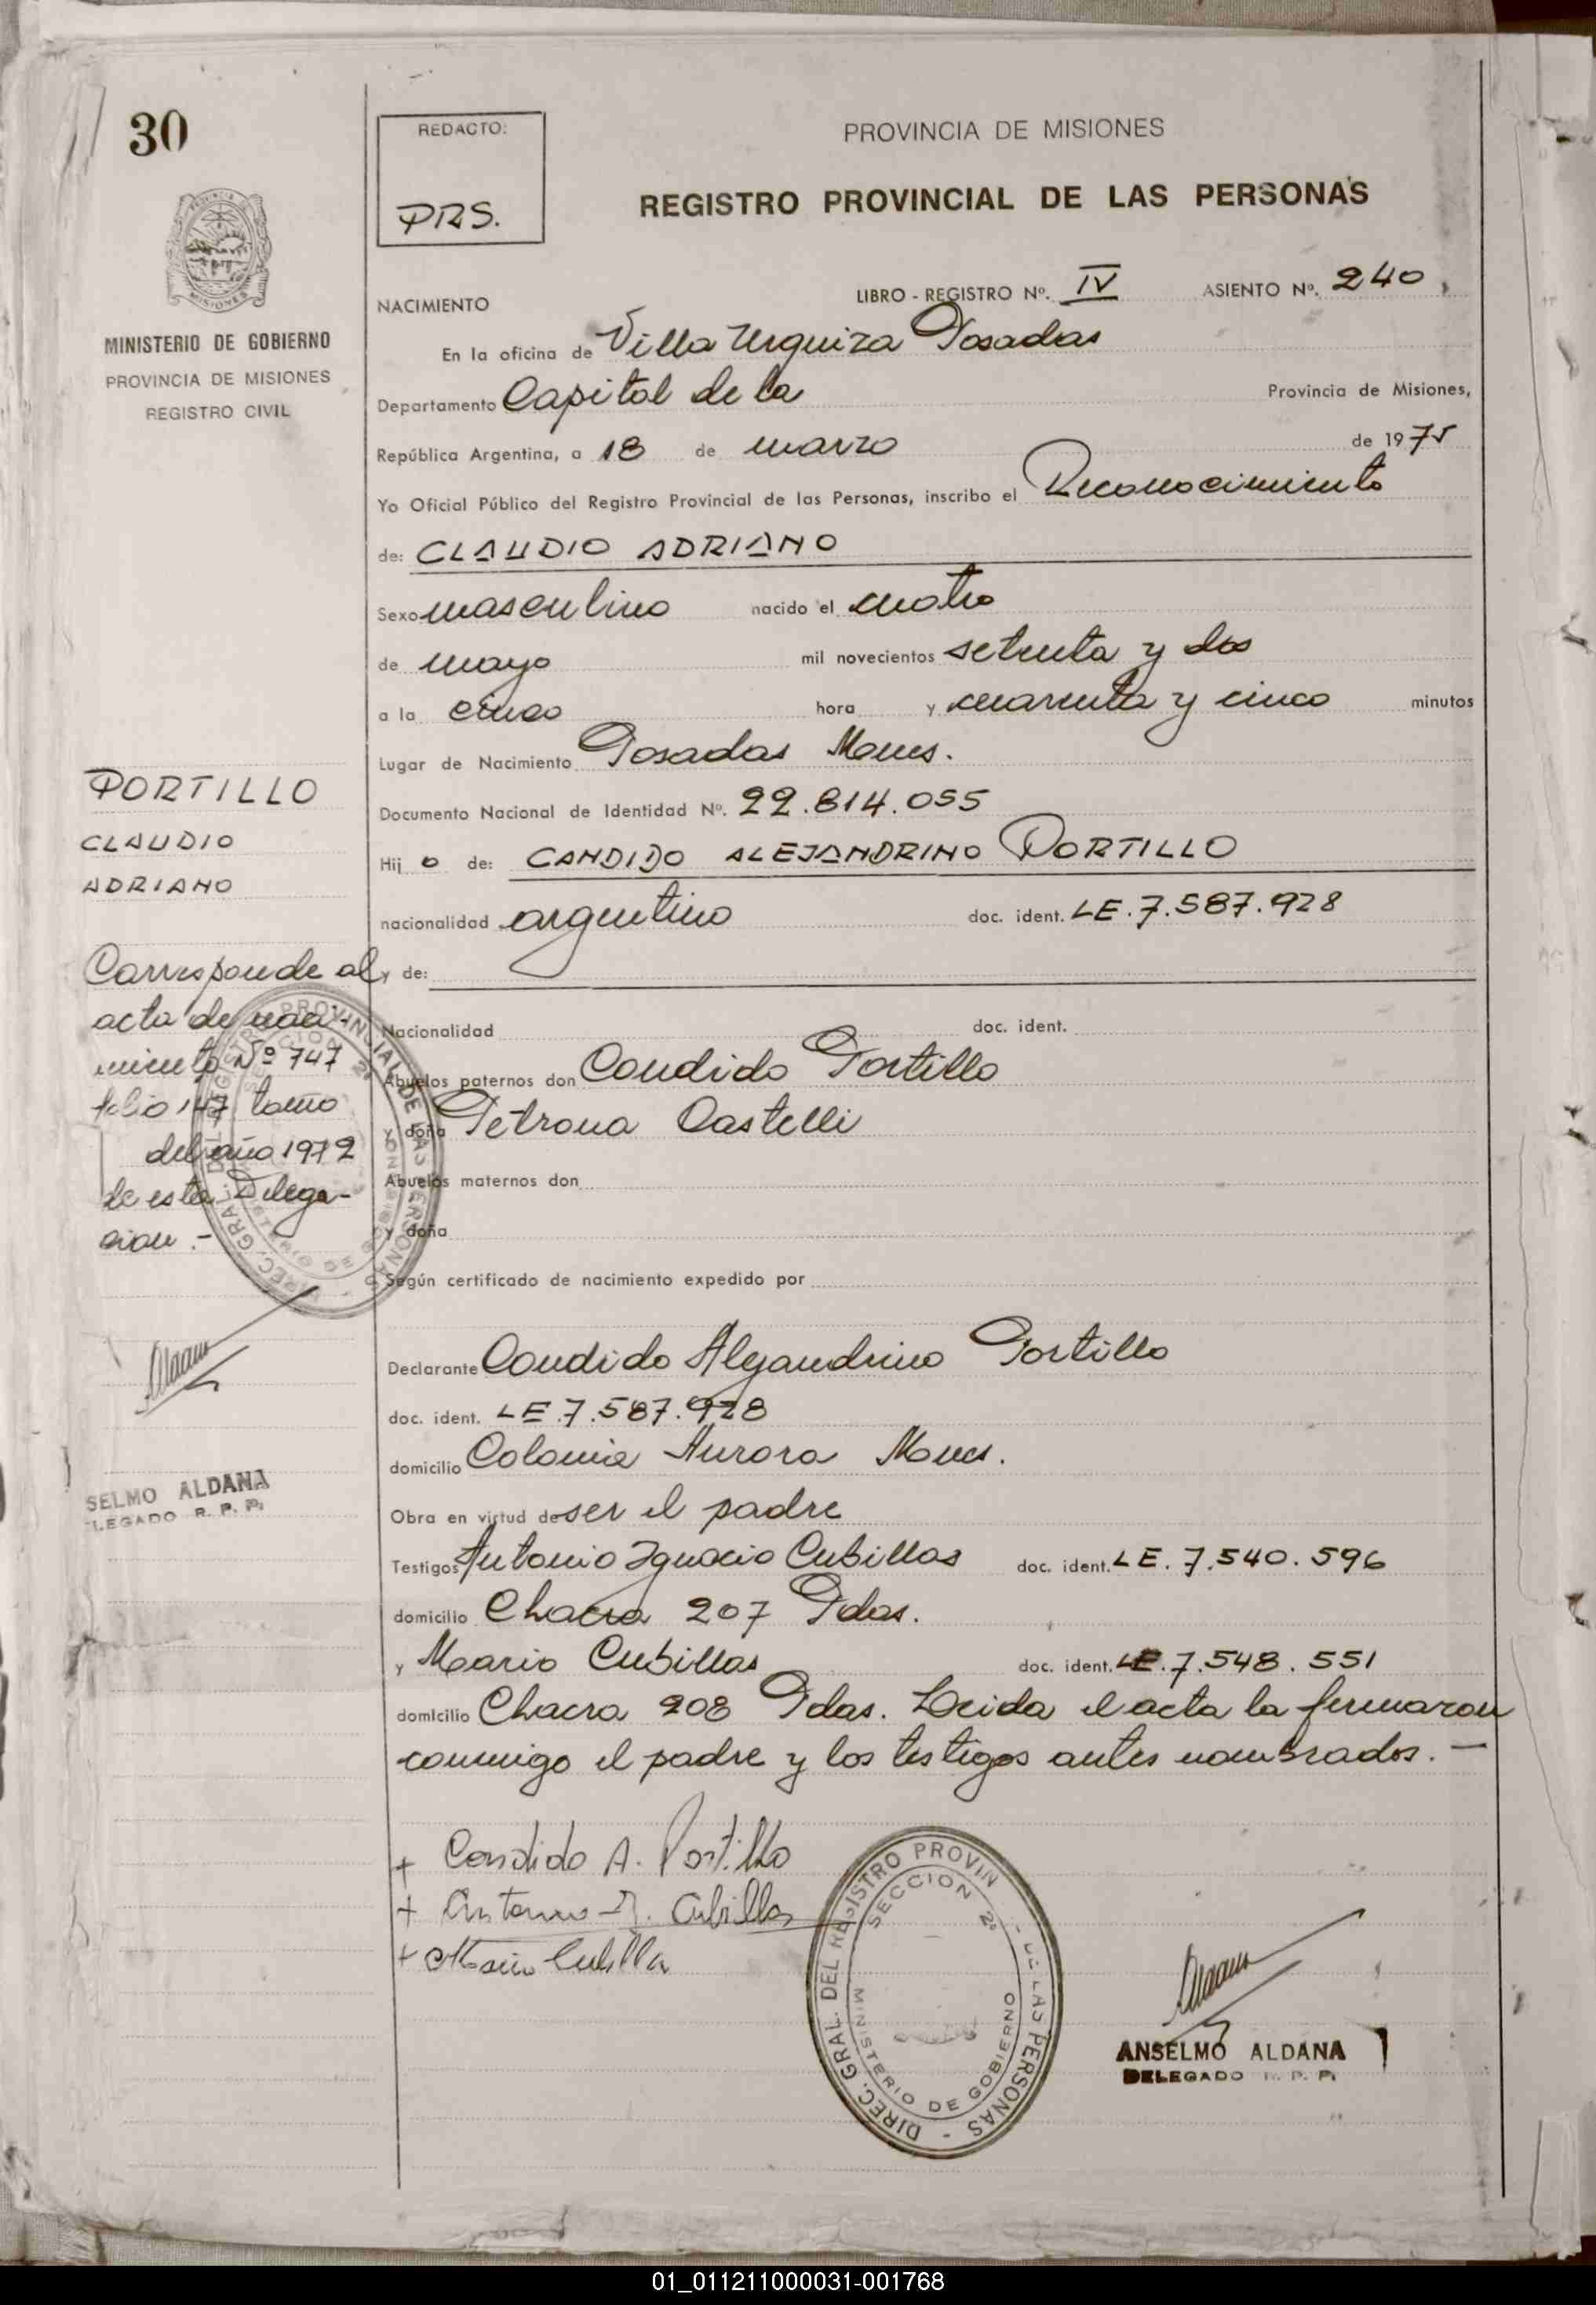 30
REDACTO:
PRS.
PROVINCIA DE MISIONES
REGISTRO PROVINCIAL DE LAS PERSONAS
MISIONES
MINISTERIO DE GOBIERNO
PROVINCIA DE MISIONES
REGISTRO CIVIL
NACIMIENTO
LIBRO - REGISTRO Nº. IV ASIENTO Nº. 240
En la oficina de Villa Urquiza Posadas
Departamento Capital de la Provincia de Misiones,
República Argentina, a 18 de marzo de 1975
Yo Oficial Público del Registro Provincial de las Personas, inscribo el Reconocimiento
de: CLAUDIO ADRIANO
Sexo masculino nacido el cuatro
de mayo mil novecientos setenta y dos
a la cinco hora y cuarenta y cinco minutos
Lugar de Nacimiento Posadas Mnes.
Documento Nacional de Identidad Nº. 22.814.055
Hij o de: CANDIDO ALEJANDRINO PORTILLO
nacionalidad argentino doc. ident. LE. 7.587.928
y de:
Nacionalidad doc. ident.
Abuelos paternos don Candido Portillo
y doña Petrona Castelli
Abuelos maternos don
y doña
Según certificado de nacimiento expedido por
Declarante Candido Alejandrino Portillo
doc. ident. LE. 7.587.928
domicilio Colonia Aurora Mnes.
Obra en virtud de ser el padre
Testigos Antonio Ignacio Cubillas doc. ident. LE. 7.540.596
domicilio Chacra 207 Pdas.
y Mario Cubillas doc. ident. LE. 7.548.551
domicilio Chacra 208 Pdas. Leida el acta la firmaron
conmigo el padre y los testigos antes nombrados. —
PORTILLO
CLAUDIO
ADRIANO
Corresponde al
acta de naci-
miento Nº 747
folio 147 tomo
I del año 1972
de esta Delega-
cion .-
DIREC. GRAL. DEL REGISTRO PROVINCIAL DE LAS PERSONAS -
SECCION 2ª
SELMO ALDANA
LEGADO R. P. P.
+ Candido A. Portillo
+ Antonio I. Cubillas
+ Mario Cubilla
DIREC. GRAL. DEL REGISTRO PROVIN - DE LAS PERSONAS -
SECCION 2ª
MINISTERIO DE GOBIERNO
ANSELMO ALDANA
DELEGADO R. P. P.
01_011211000031-001768